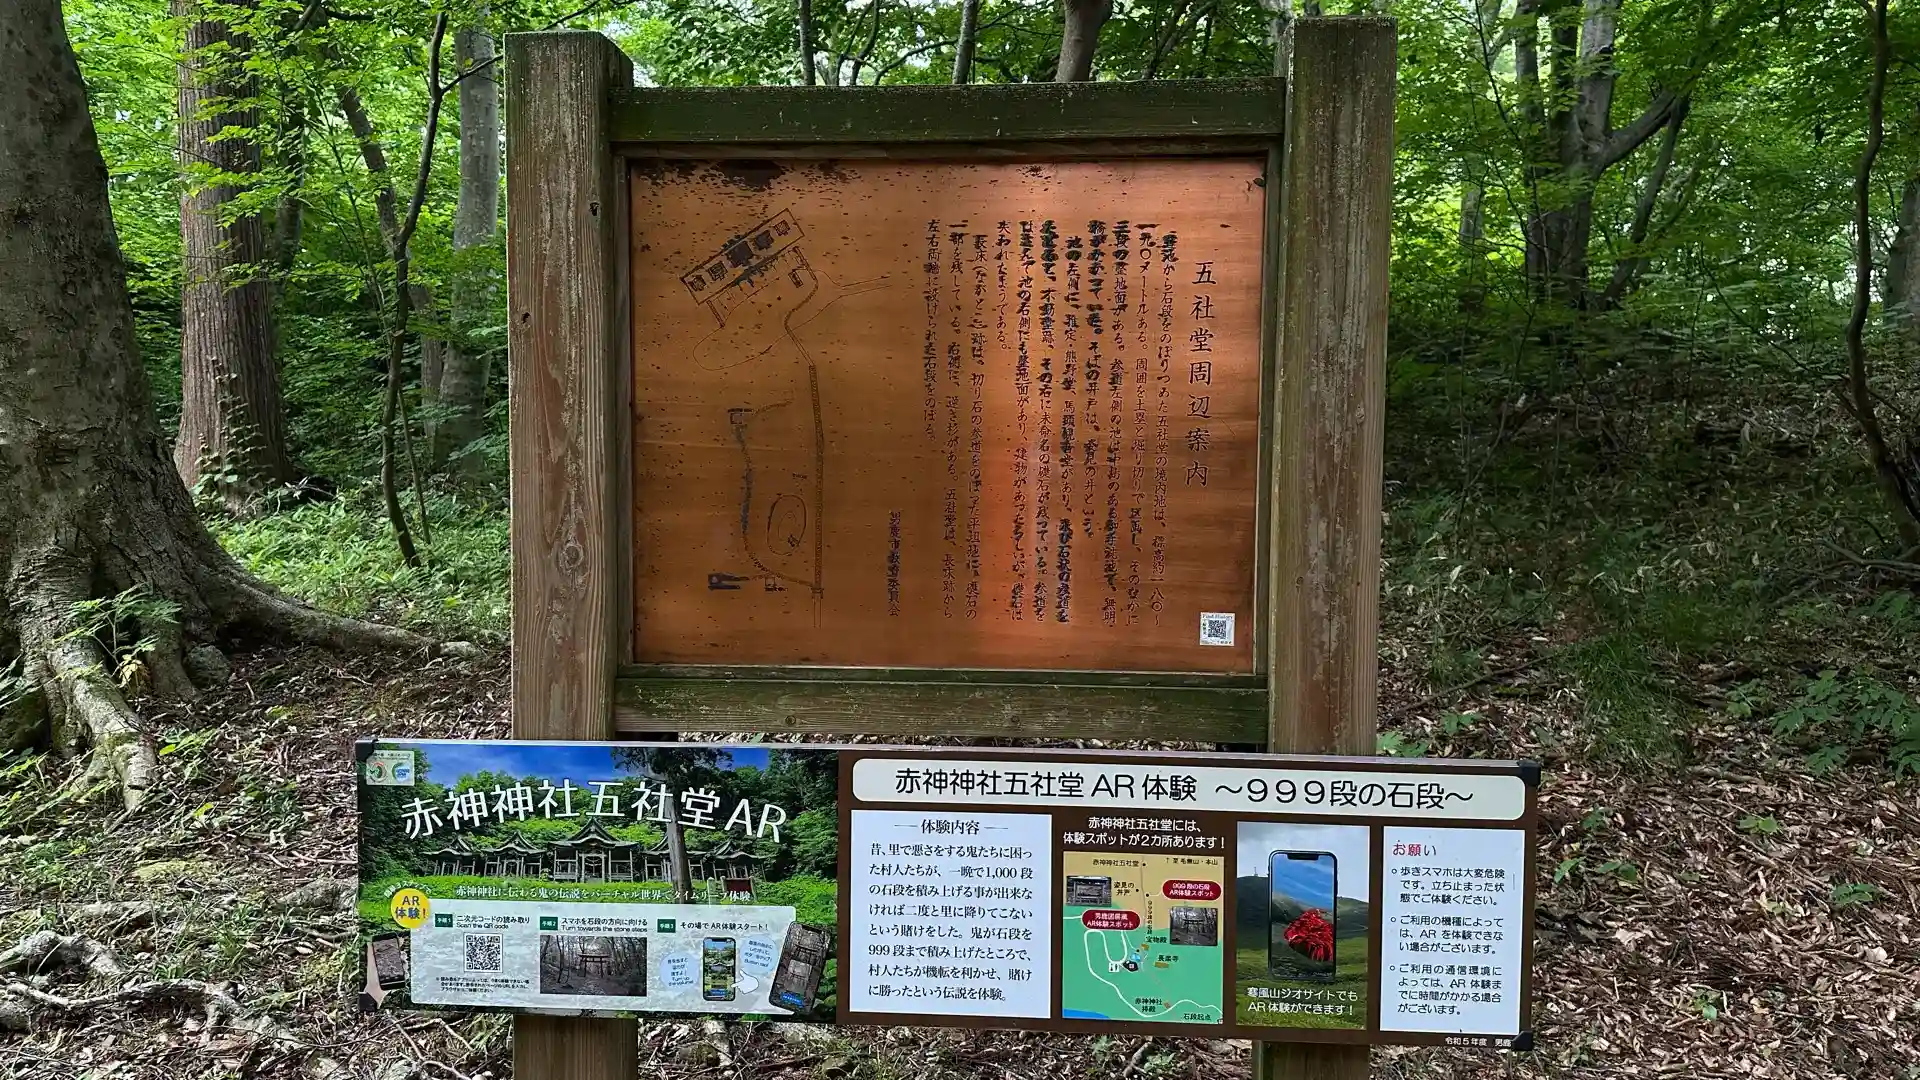 五社堂周辺案内
から石段をのぼりつめた五社堂の境内地は、標高約一八〇~
一九〇メートルある。周囲を土塁と堀り切りで区画し、そのなかに
三段の整地面がある。参道左側の池は中島のある御手洗池で、無明
橋がかかっていた。そばの井戸は、姿見の井という。
池の左側に、推定・熊野堂、馬頭観音堂があり、飛び石状の参道を
不動堂跡、その右に未命名の礎石が残っている。参道を
はさんで池の右側にも整地面があり、建物があったらしいが、礎石は
失われたようである。
長床(ながとこ)跡は、切り石の参道をのぼった平坦地に、礎石の
一部を残している。右側に、逆さ杉がある。五社堂は、長床跡から
左右両側に設けられた石段をのぼる。
男鹿市教育委員会
Find History
赤神神社五社堂AR
赤神神社に伝わる鬼の伝説をバーチャル世界でタイムリープ体験
AR
体験!
手順1
二次元コードの読み取り
Scan the QR code
手順2
スマホを石段の方向に向ける
Turn towards the stone steps
手順3
その場でAR体験スタート!
赤神神社五社堂 AR 体験 ~999段の石段~
体験内容
昔、里で悪さをする鬼たちに困っ
た村人たちが、一晩で1,000 段
の石段を積み上げる事が出来な
ければ二度と里に降りてこない
という賭けをした。鬼が石段を
999 段まで積み上げたところで、
村人たちが機転を利かせ、賭け
に勝ったという伝説を体験。
赤神神社五社堂には、
体験スポットが2カ所あります!
赤神神社五社堂
↑至 毛無山・本山
姿見の
井戸
999段の石段
AR体験スポット
AR体験スポット
999段の石段
宝物殿
長楽寺
赤神神社
拝殿
石段起点
寒風山ジオサイトでも
AR体験ができます!
お願い
○歩きスマホは大変危険
です。立ち止まった状
態でご体験ください。
○ご利用の機種によって
は、AR を体験できな
い場合がございます。
○ご利用の通信環境に
よっては、AR 体験ま
でに時間がかかる場合
がございます。
令和5年度 男鹿